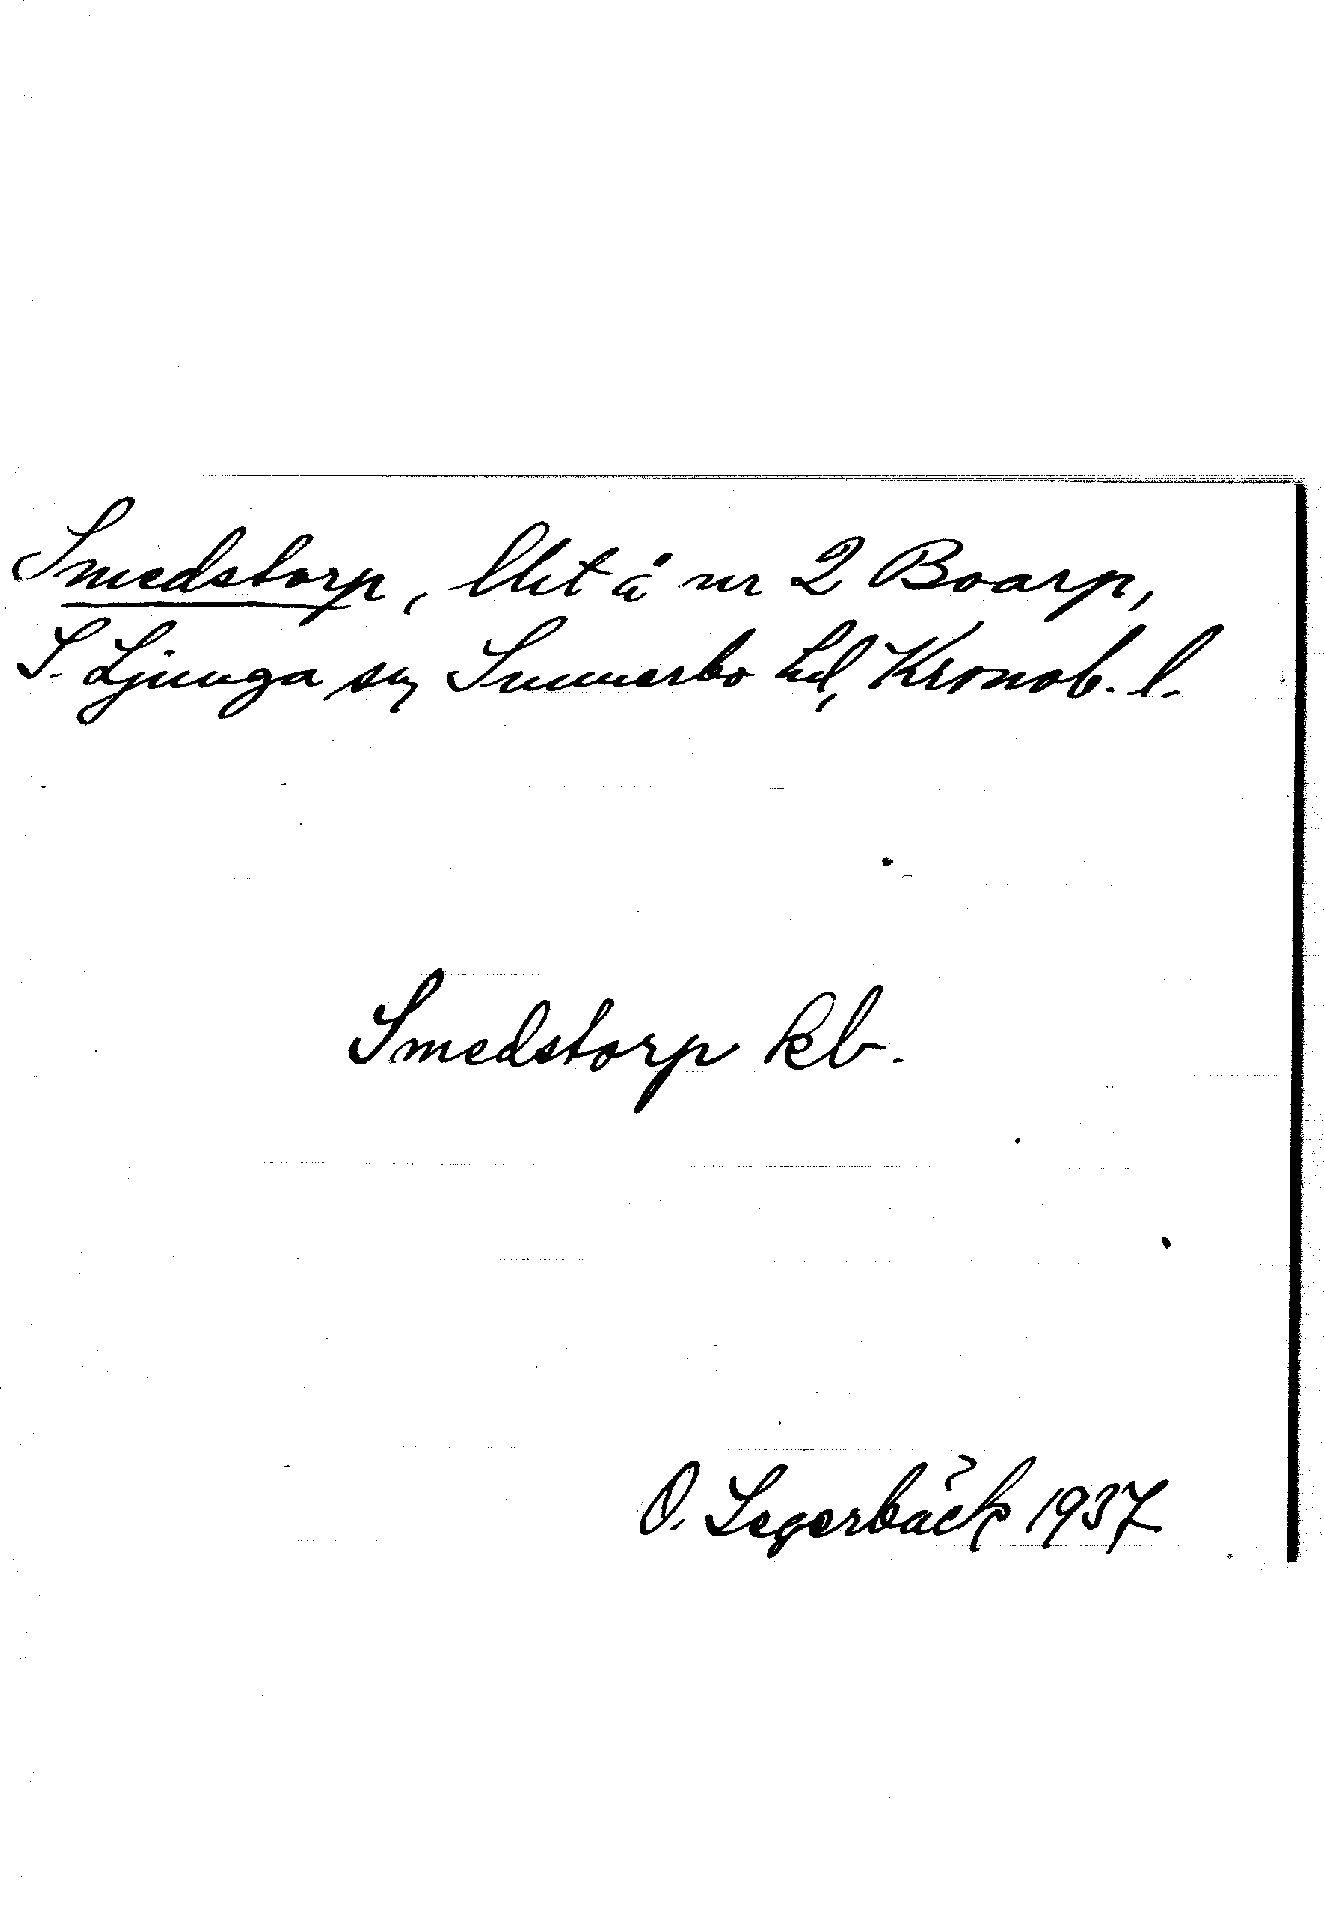 Smedstorp, lht å nr 2 Boarp,
S. Ljunga sn, Sunnerbo hd, Kronob. l.
Smedstorp kb.
O. Segerbäck 1937